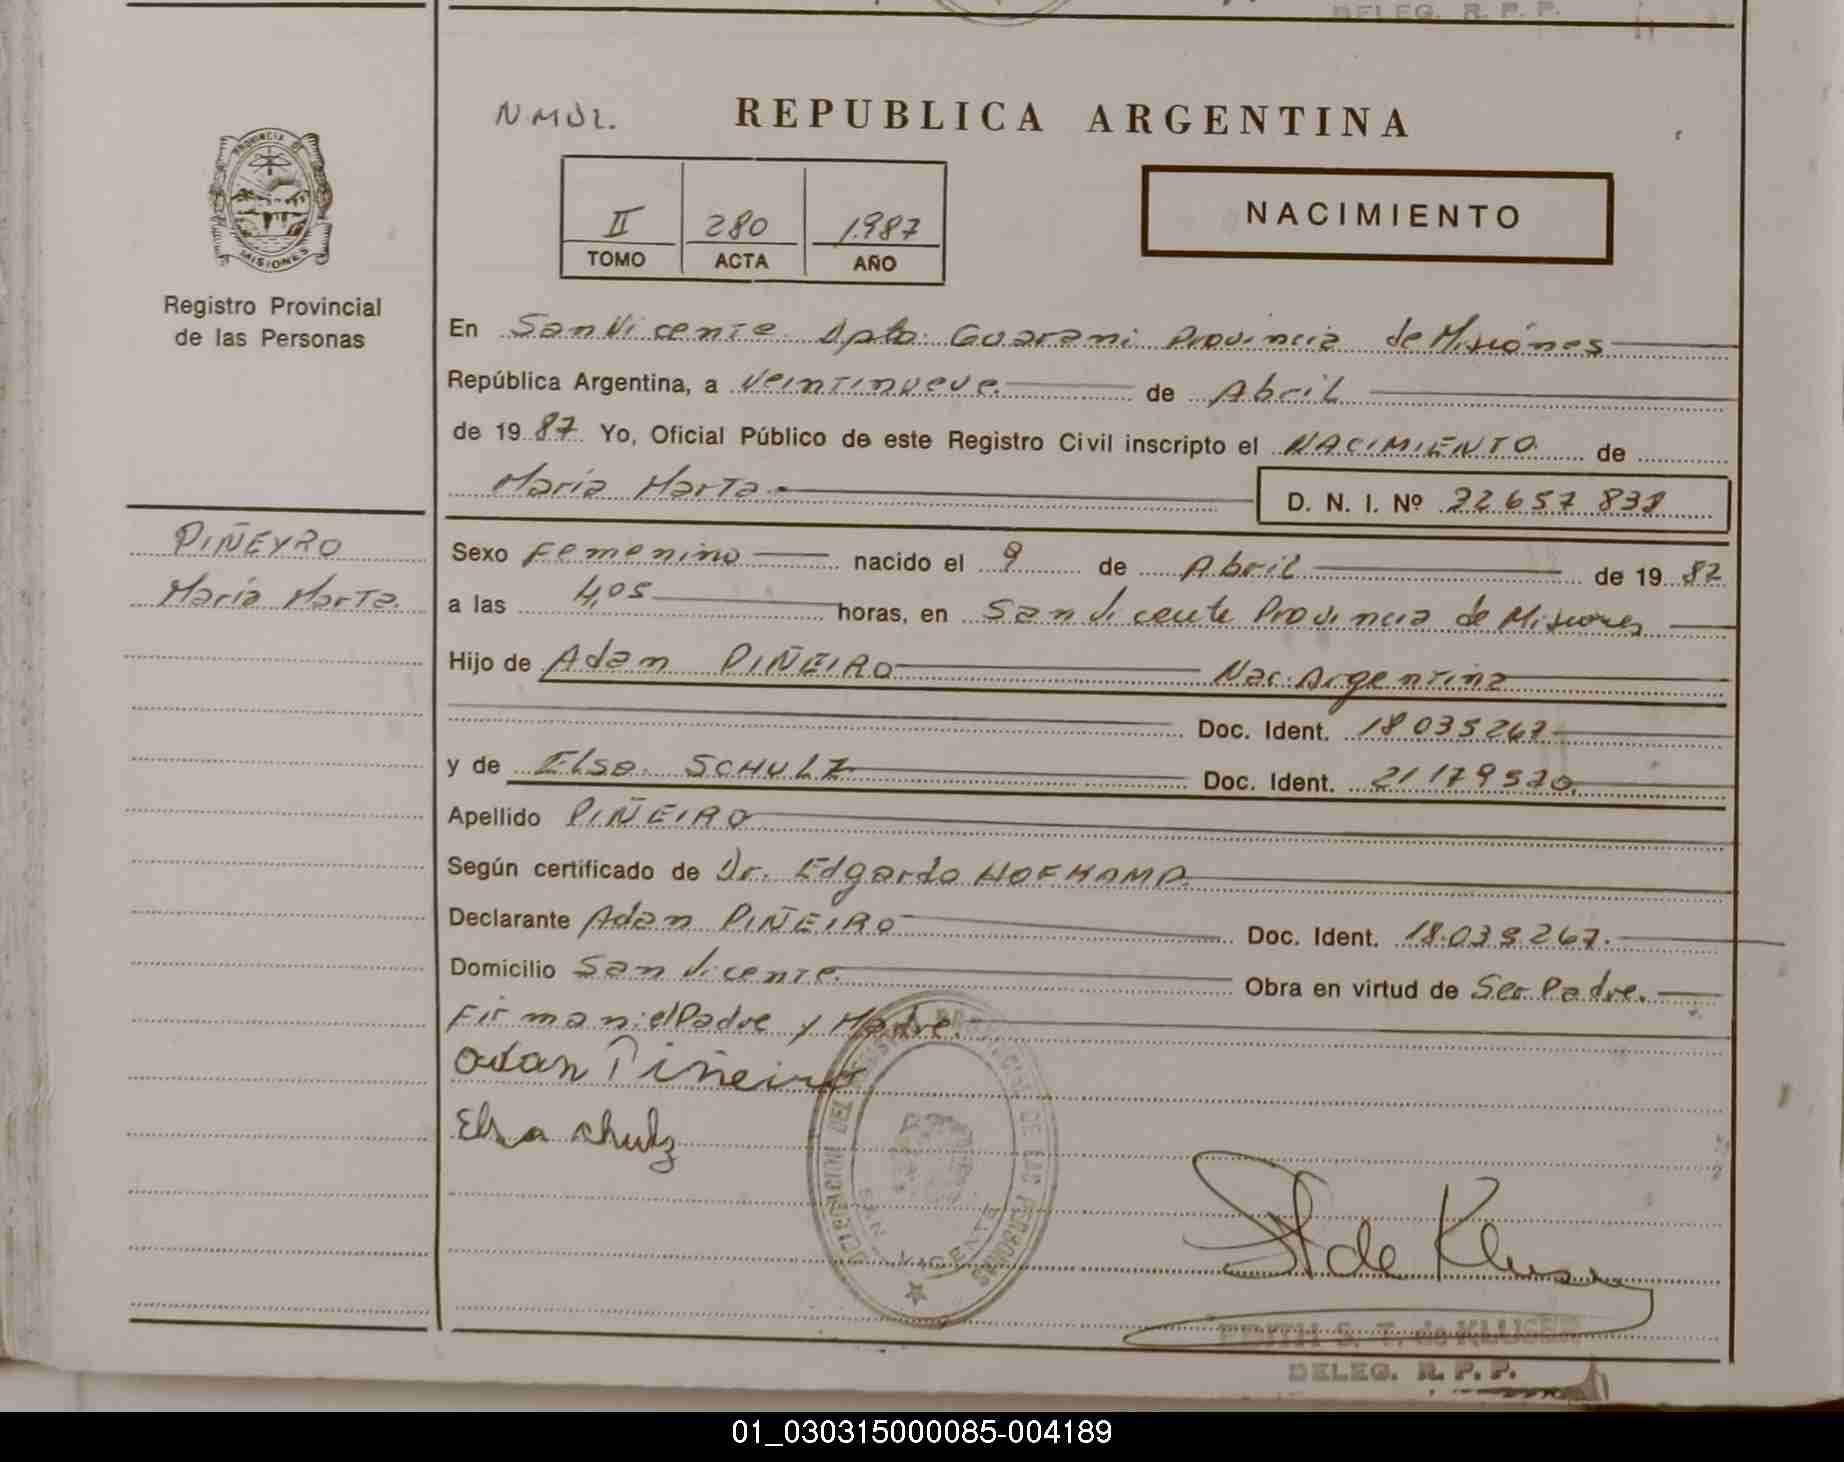 DELEG. R. P. P.
PROVINCIA DE
MISIONES
Registro Provincial
de las Personas
PIÑEYRO
María Marta.
REPUBLICA ARGENTINA
II 280 1.987
TOMO ACTA AÑO
NACIMIENTO
En San Vicente Dpto. Guarani Provincia de Misiónes
República Argentina, a veintinueve de Abril
de 19 87 Yo, Oficial Público de este Registro Civil inscripto el NACIMIENTO de
María Marta D. N. I. Nº 32 657 838
Sexo Femenino nacido el 9 de Abril de 19 87
a las 4,05 horas, en San Vicente Provincia de Misiones
Hijo de Adam PIÑEIRO Nac. Argentina
Doc. Ident. 18 035 267
y de Elsa SCHULZ Doc. Ident. 21 179 570.
Apellido PIÑEIRO
Según certificado de Dr. Edgardo HOFKAMP.
Declarante Adan PIÑEIRO Doc. Ident. 18.035.267.
Domicilio San Vicente. Obra en virtud de Ser Padre.
Firman: el Padre y Madre.
Adan Piñeiro
Elsa chulz
DELEGACION DEL REGISTRO PROVINCIAL DE LAS PERSONAS
SAN VICENTE
de Kluser
EDITH S. T. de KLUSER
DELEG. R. P. P.
01_030315000085-004189